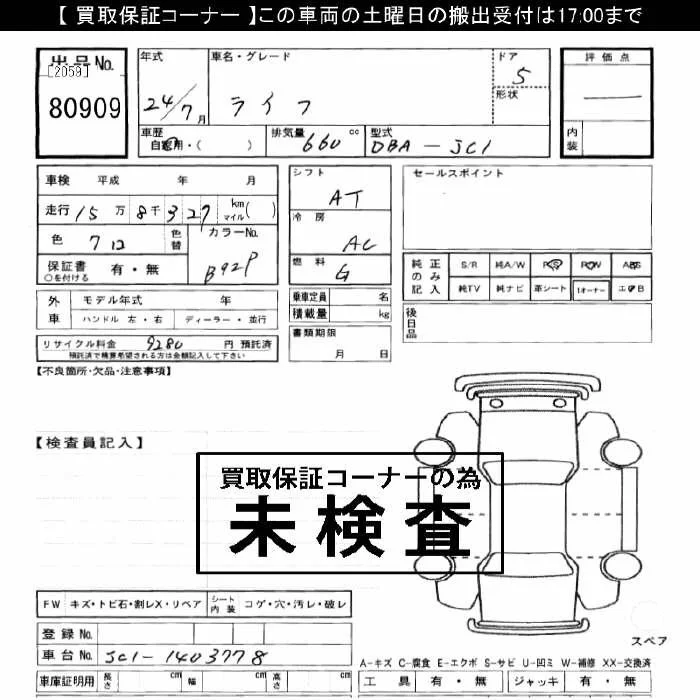 【 買取保証コーナー 】この車両の土曜日の搬出受付は17:00まで
出品No.
[2059]
80909
年式
24/7月
車名・グレード
ライフ
ドア
5
形状
評価点
内装
車歴
自家用・( )
排気量 660 cc
型式
DBA-JC1
車検 平成 年 月
走行 15万8千327 km マイル( )
色 クロ 色替
カラーNo.
B92P
保証書 有・無
○を付ける
シフト
AT
冷房
AC
燃料
G
セールスポイント
純正のみ記入
S/R 純A/W PS PW ABS
純TV 純ナビ 革シート 1オーナー エアB
外車
モデル年式 年
ハンドル 左・右 ディーラー・並行
乗車定員 名
積載量 kg
後日品
リサイクル料金 9280 円 預託済
預託済で精算希望される方は金額記入して下さい
書類期限
月 日
【不良箇所・欠品・注意事項】
【検査員記入】
買取保証コーナーの為
未検査
FW キズ・トビ石・割レX・リペア
シート内装 コゲ・穴・汚レ・破レ
登録No.
車台No. JC1-1403778
車庫証明用 長さ cm 幅 cm 高さ cm
スペア
A-キズ C-腐食 E-エクボ S-サビ U-凹ミ W-補修 XX-交換済
工具 有・無 ジャッキ 有・無